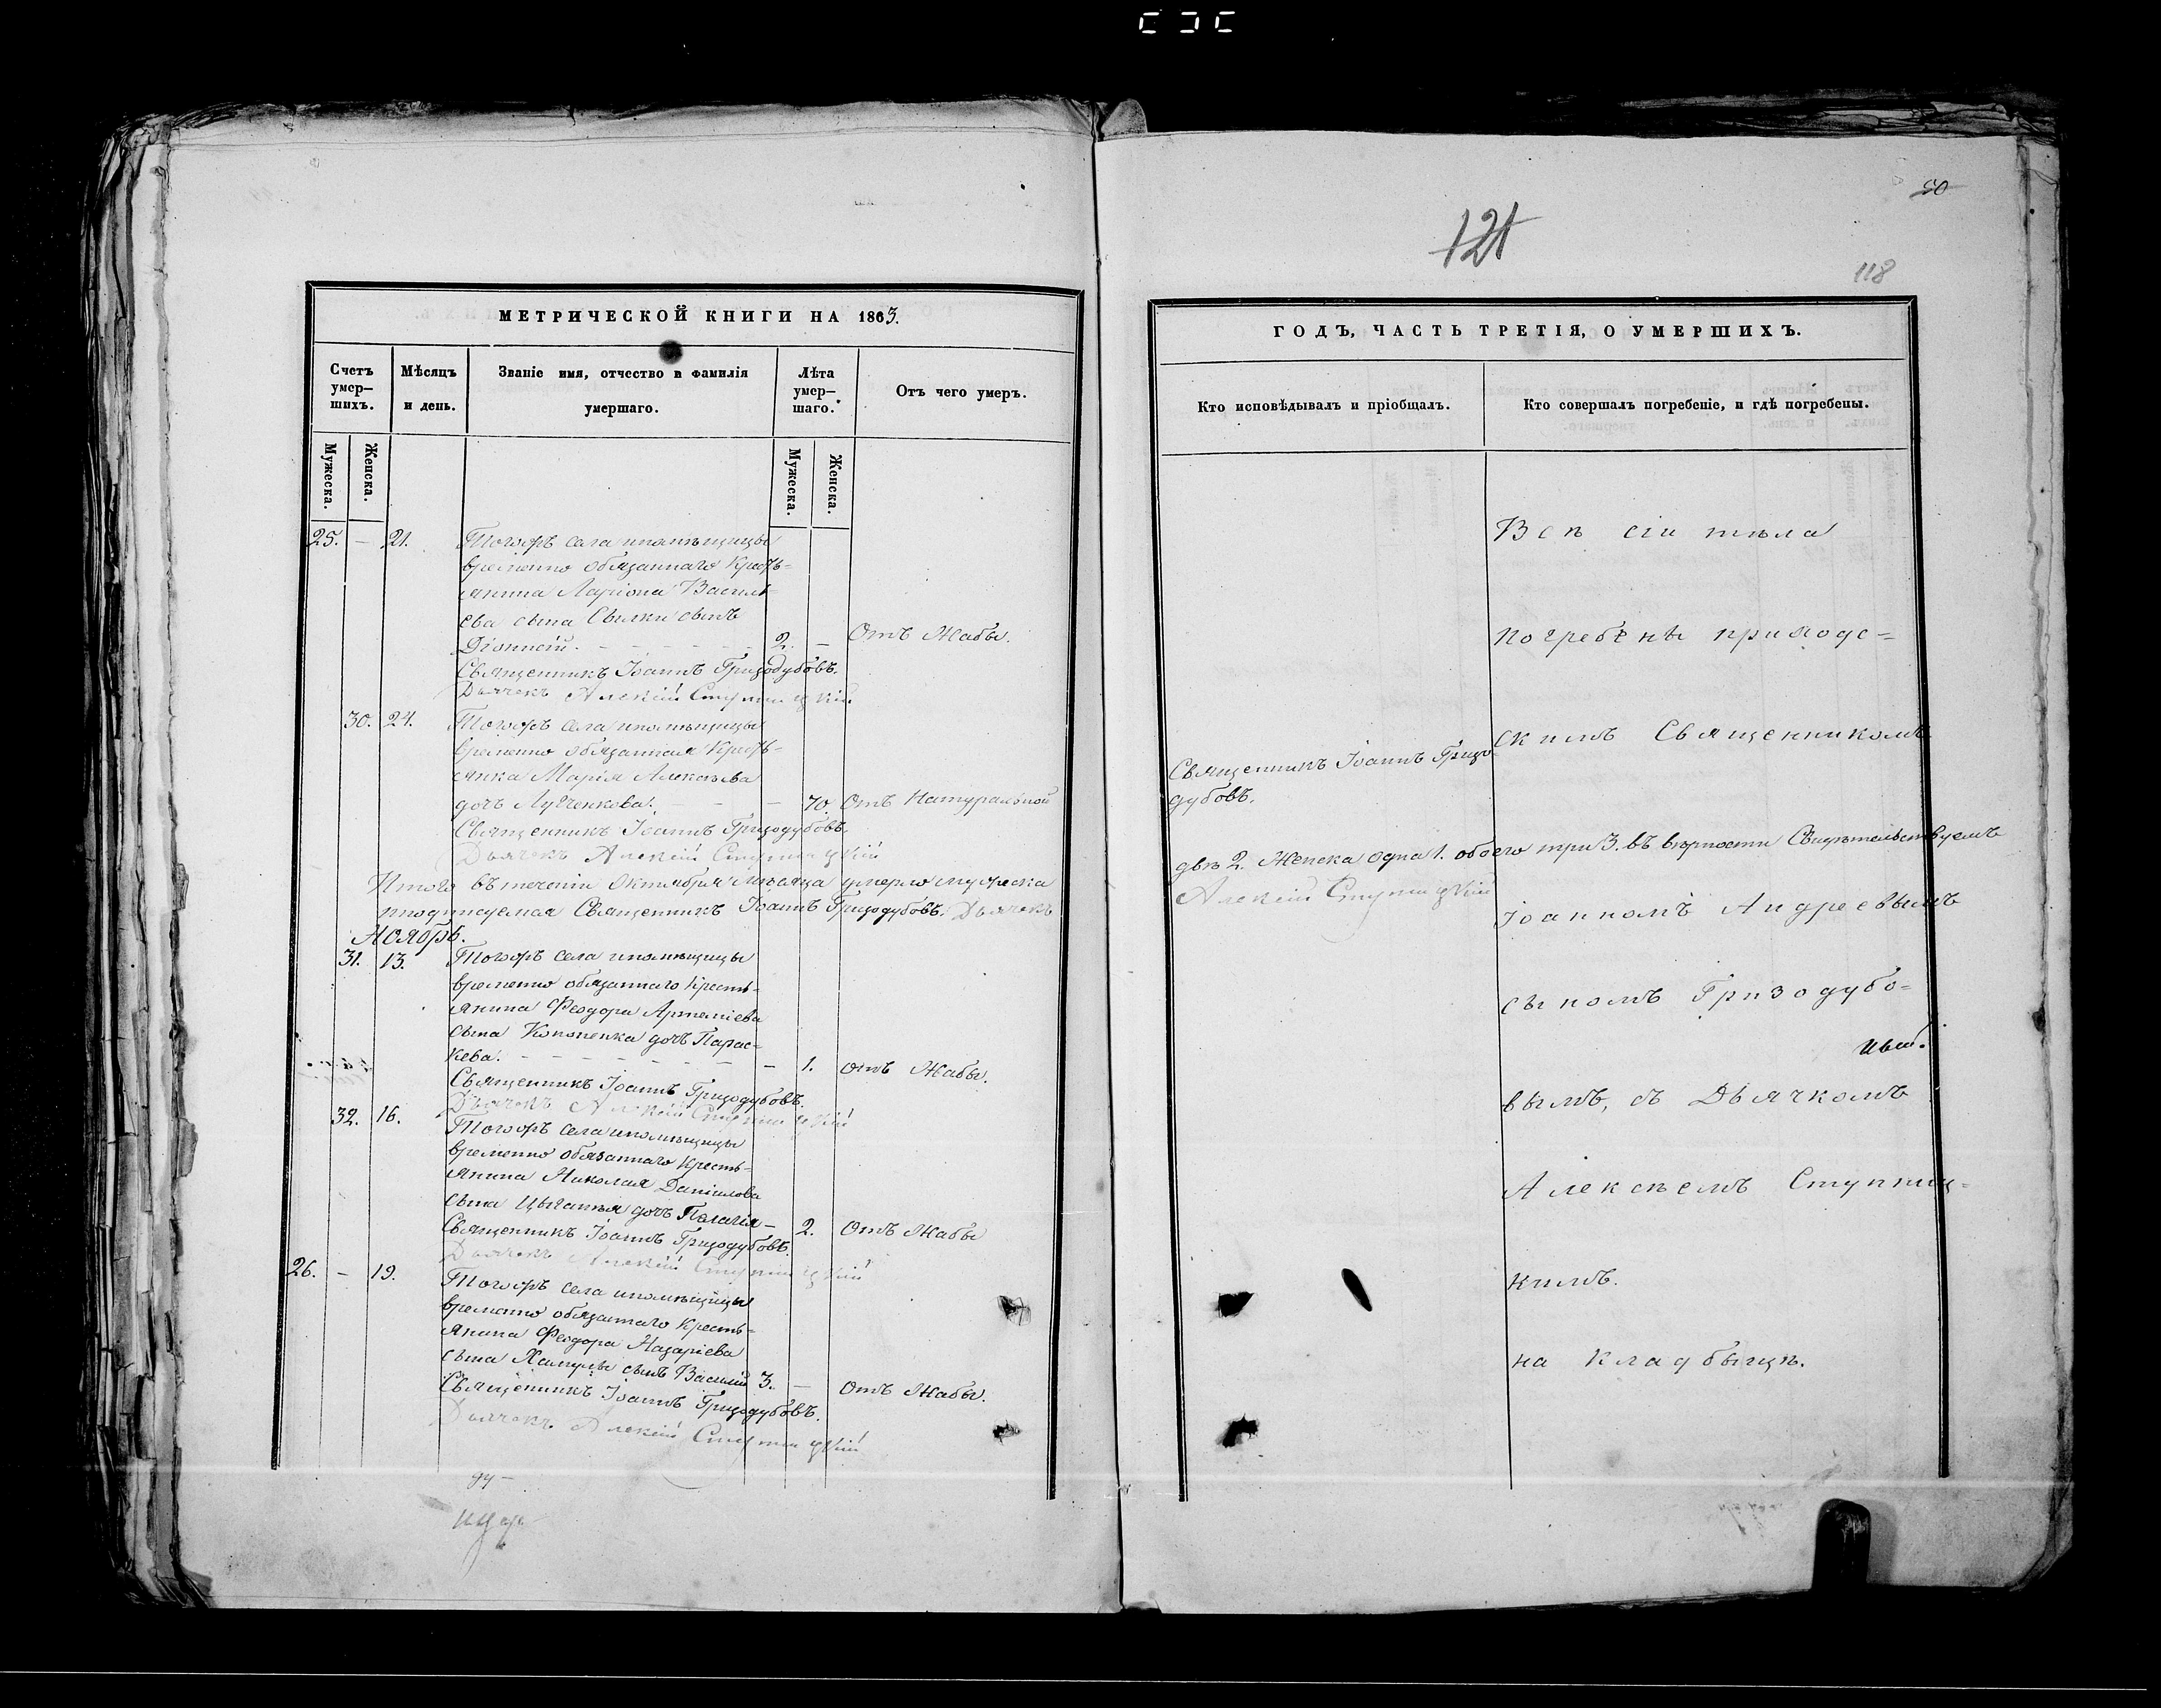 МЕТРИЧЕСКОЙ КНИГИ НА 1863.
Счетъ умер—шихъ.
Мѣсяцъ и день.
Званіе имя, отчество и фамилія умершаго.
Лѣта умер—шаго.
Отъ чего умеръ.
Мужеска.
Женска.
Мужеска.
Женска.
25. — 21. Тогожъ села помѣщицы
временно обязаннаго Кресть=
янина Ларіона Василь
ева сына Свилки сынъ
Діонисій. 2. — Отъ Жабы.
Священникъ Іоаннъ Гризодубовъ.
Дьячекъ Алексій Ступницкій
30. 24. Тогожъ села помѣщицы
временно обязанная Кресть=
янка Марія Алексѣева
дочъ Лутченкова. — 70 Отъ Натуральной
Священникъ Іоаннъ Гризодубовъ.
Дьячекъ Алексій Ступницкій
Итого въ теченіи Октября мѣсяца умерло мужеска
подписуемся Священникъ Іоаннъ Гризодубовъ. Дьячекъ
Ноябрь.
31. 13. Тогожъ села помѣщицы
временно обязаннаго Кресть=
янина Феодора Артеміева
сына Кононенка дочъ Парас=
кева. — 1. отъ Жабы.
Священникъ Іоаннъ Гризодубовъ.
Дьячекъ Алексій Ступницкій
32. 16. Тогожъ села помѣщицы
временно обязаннаго Кресть=
янина Николая Даніилова
сына Цыганья дочъ Пелагія —
2. Отъ Жабы
Священникъ Іоаннъ Гризодубовъ.
Дьячекъ Алексій Ступницкій
26. — 19. Тогожъ села помѣщицы
временно обязаннаго Кресть=
янина Феодора Назаріева
сына Хамулы сынъ Василій 3. — Отъ Жабы.
Священникъ Іоаннъ Гризодубовъ.
Дьячекъ Алексій Ступницкій
50
121
118
ГОДЪ, ЧАСТЬ ТРЕТІЯ, О УМЕРШИХЪ.
Кто исповѣдывалъ и пріобщалъ.
Кто совершалъ погребеніе, и гдѣ погребены.
Священникъ Іоаннъ Гризо
дубовъ.
двѣ 2. Женска одна 1. обоего три 3. въ вѣрности Свидѣтельствуемъ
Алексій Ступницкій
Всѣ сіи тѣла
погребены приходс=
скимъ Священникомъ
Іоанномъ Андреевымъ
сыномъ Гризодубо=
вымъ, съ Дьячкомъ
Алексѣемъ Ступниц=
кимъ.
на кладбыщѣ.